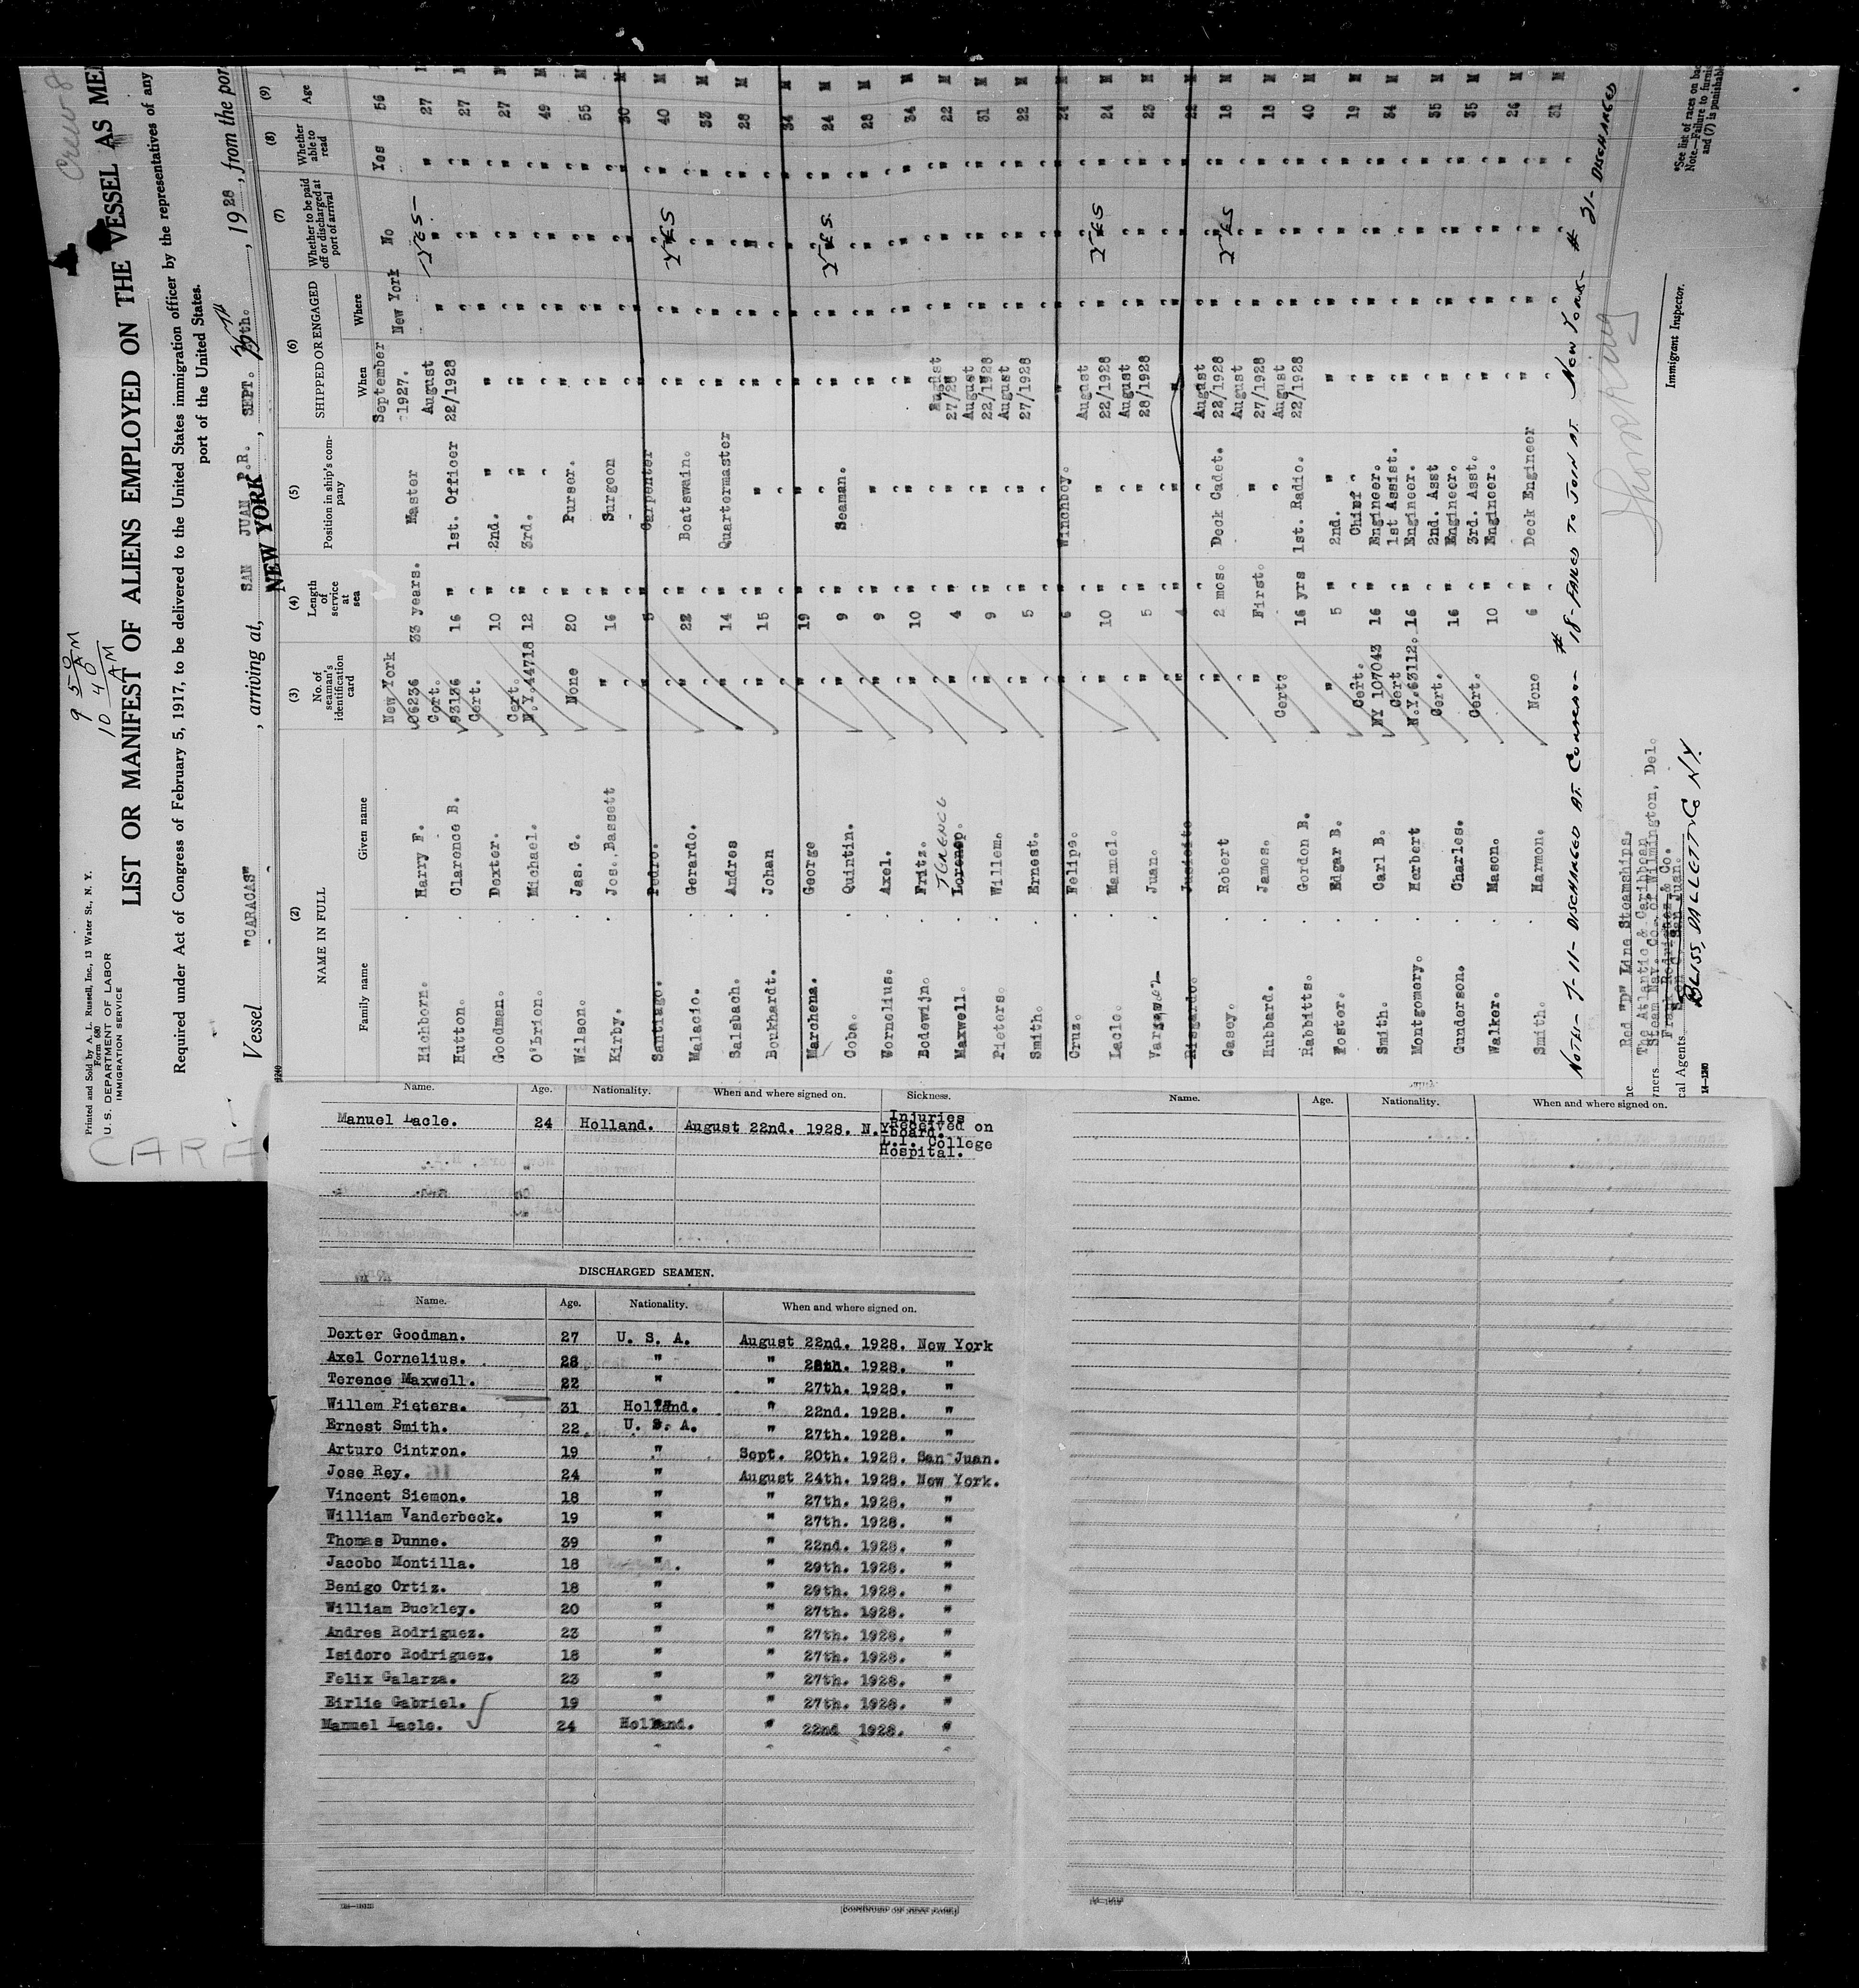 Printed and Sold by A. L. Russell, Inc., 13 Water St., N. Y.
Form 680
U. S. DEPARTMENT OF LABOR
IMMIGRATION SERVICE
9 50 AM
10 40 AM
Crew 8
LIST OR MANIFEST OF ALIENS EMPLOYED ON THE VESSEL AS ME
Required under Act of Congress of February 5, 1917, to be delivered to the United States immigration officer by the representatives of any
port of the United States.
Vessel "CARACAS", arriving at, SAN JUAN P.R., SEPT. , 1928, from the por
NEW YORK
(2) (3) (4) (5) (6) (7) (8) (9)
NAME IN FULL
Family name Given name
No. of seaman's identification card
Length of service at sea
Position in ship's company
SHIPPED OR ENGAGED
When Where
Whether to be paid off or discharged at port of arrival
Whether able to read
Age
Hichborn. Harry F. New York 06236 33 years. Master September -1927. New York No Yes 56
Hutton. Clarence B. Cert. 93126 16 " 1st. Officer August 22/1928 " YES- " 27 M
Goodman. Dexter. Cert. 10 " 2nd. " " " " " 27 M
O'Brien. Michael. Cert. N.Y.44718 12 " 3rd. " " " " " 27 M
Wilson. Jas. G. None 20 " Purser. " " " " 49 M
Kirby. Jos. Bassett " 16 " Surgeon " " " " 55 M
Santiago. Pedro. " 5 " Carpenter " " " " 30 M
Malacio. Gerardo. " 22 " Boatswain. " " YES " 40 M
Salsbach. Andres " 14 " Quartermaster " " " " 33 M
Boukhardt. Johan " 15 " " " " " " 28 M
Marchena. George " 19 " " " " " " 34 M
Coba. Quintin. " 9 " Seaman. " " YES. " 24 M
Wornelius. Axel. " 9 " " " " " " 28 M
Bodewijn. Fritz. " 10 " " " " " " 34 M
Maxwell. TERENCE " 4 " " August 27/28 " " " 22 M
Pieters. Willem. " 9 " " August 22/1928 " " " 31 M
Smith. Ernest. " 5 " " August 27/1928 " " " 22 M
Cruz. Felipe. " 6 " Winchboy. " " " " 24 M
Lacle. Manuel. " 10 " " August 22/1928 " YES " 24 M
Juan. " 5 " " August 28/1928 " " " 23 M
" 4 " " " " " " 22 M
Casey. Robert " 2 mos. Deck Cadet. August 22/1928 " YES " 18 M
Hubbard. James. " First. " August 27/1928 " " " 18 M
Rabbitts. Gordon B. Cert. 16 yrs 1st. Radio. August 22/1928 " " " 40 M
Foster. Edgar B. " 5 " 2nd. " " " " " 19 M
Smith. Carl B. Cert. NY 107043 16 " Chief Engineer. " " " " 34 M
Montgomery. Herbert Cert N.Y.63112. 16 " 1st Assist. Engineer. " " " " 35 M
Gunderson. Charles. Cert. 16 " 2nd. Asst Engineer. " " " " 35 M
Walker. Mason. Cert. 10 " 3rd. Asst. Engineer. " " " " 26 M
Smith. Harmon. None 6 " Deck Engineer " " " " 31 M
NOTE:- 7-11- DISCHARGED AT # 18-FAILED TO JOIN AT NEW YORK # 31- DISCHARGED
Red "D" Line Steamships.
The Atlantic & Caribbean
Steam Nav. Co. of Wilmington, Del.
Frank Rodriguez & Co.
BLISS, DALLETT & Co NY.
Immigrant Inspector.
*See list of races on bac
Note.—Failure to furnis
and (7) is punishable
14—1240
CARA
Name. Age. Nationality. When and where signed on. Sickness.
Manuel Lacle. 24 Holland. August 22nd. 1928. N.Y. Injuries
received on
board.
L.I. College
Hospital.
DISCHARGED SEAMEN.
Name. Age. Nationality. When and where signed on.
Dexter Goodman. 27 U. S. A. August 22nd. 1928. New York
Axel Cornelius. 28 " " 28th. 1928. "
Terence Maxwell. 22 " " 27th. 1928. "
Willem Pieters. 31 Holland. " 22nd. 1928. "
Ernest Smith. 22 U. S. A. " 27th. 1928. "
Arturo Cintron. 19 " Sept. 20th. 1928. San Juan.
Jose Rey. 24 " August 24th. 1928. New York.
Vincent Siemon. 18 " " 27th. 1928. "
William Vanderbeck. 19 " " 27th. 1928. "
Thomas Dunne. 39 " " 22nd. 1928. "
Jacobo Montilla. 18 " " 29th. 1928. "
Benigo Ortiz. 18 " " 29th. 1928. "
William Buckley. 20 " " 27th. 1928. "
Andres Rodriguez. 23 " " 27th. 1928. "
Isidoro Rodriguez. 18 " " 27th. 1928. "
Felix Galarza. 23 " " 27th. 1928. "
Eirlie Gabriel. 19 " " 27th. 1928. "
Manuel Lacle. 24 Holland. " 22nd 1928. "
[CONTINUED ON NEXT PAGE]
Name. Age. Nationality. When and where signed on.